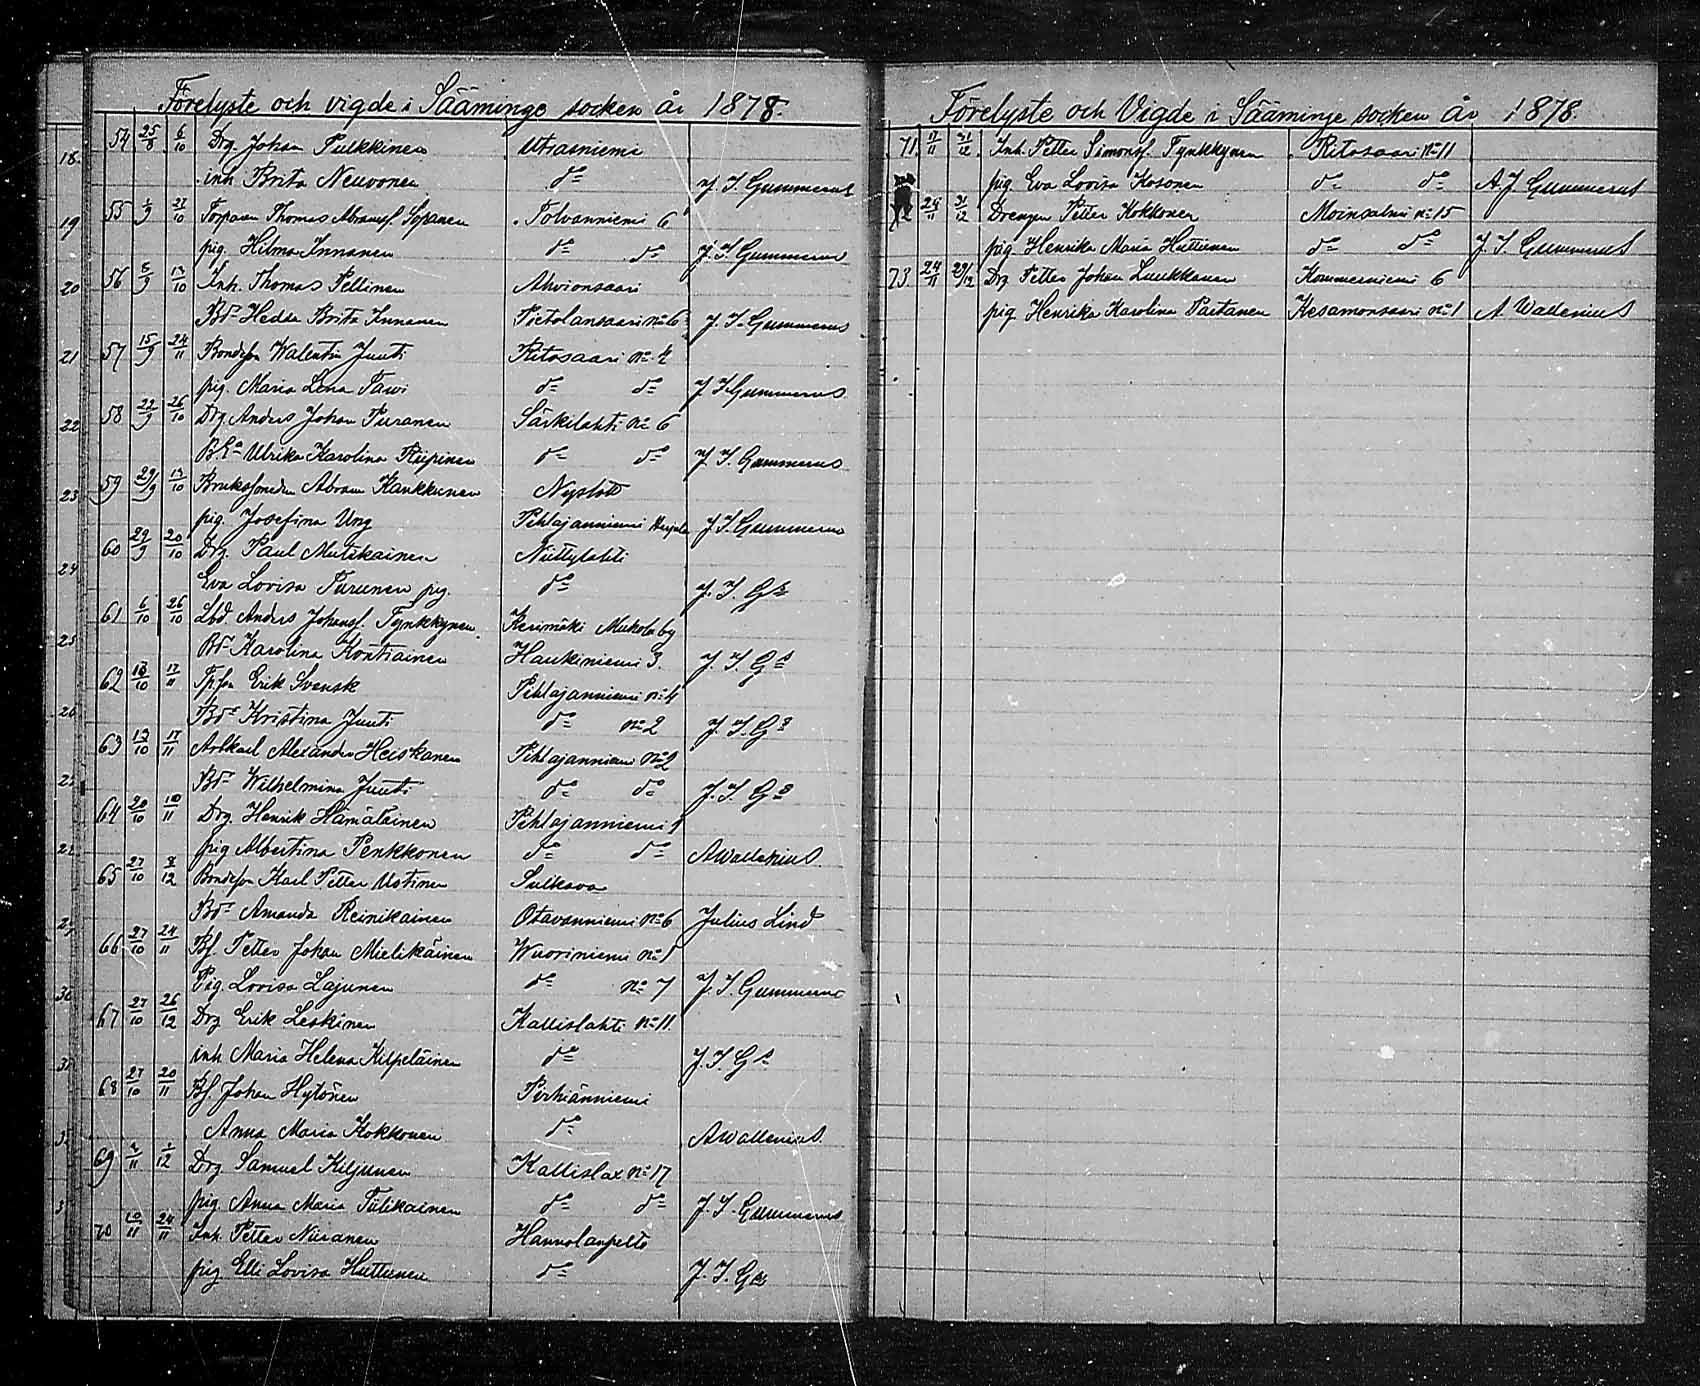 Förelyste och vigde i Sääminge socken år 1878.
54 25/8 6/10 Drg. Johan Pulkkinen Utrasniemi
inh Brita Neuvonen do J. I. Gummerus
55 1/9 27/10 Torparen Thomas Abramsf. Sopanen Tolvanniemi 6
pig. Hilma Innanen do do J. I. Gummerus
56 8/9 13/10 Inh. Thomas Pellinen Ahvionsaari
Bdr Hedda Brita Innanen Pietolansaari No 6 J. I. Gummerus
57 15/9 24/11 Bondeson Walentin Juuti Ritosaari No 4
pig. Maria Lena Pavi do do J. I. Gummerus
58 22/9 26/10 Drg. Anders Johan Puranen Särkilahti No 6
Ulrika Karolina Riipinen do do J. I. Gummerus
59 29/9 13/10 Abram Kaukkunen Nyslott
pig. Josefina Ung Pihlajanniemi J. I. Gummerus
60 29/9 20/10 Drg. Paul Mutikainen Niittylahti
Eva Lovisa Turunen pig. do J. I. Gs
61 6/10 26/10 Lbd. Anders Johansf. Tynkkynen Kerimäki Makola by
Bdr Karolina Kontiainen Haukiniemi 3. J. I. Gs
62 13/10 17/11 Erik Svensk Pihlajanniemi No 4
Bdr Kristina Juuti do No 2 J. I. Gs
63 13/10 17/11 Arbkarl Alexander Heiskanen Pihlajanniemi No 2
Bdr Wilhelmina Juuti do do J. I. Gs
64 20/10 10/11 Drg. Henrik Hämäläinen Pihlajanniemi 1
pig Albertina Penkkonen do do A Wallenius
65 27/10 8/12 Bondeson Karl Petter Ustinen Sulkava
Bdr Amanda Reinikainen Otavanniemi No 6 Julius Lind
66 27/10 24/11 Bf. Petter Johan Mielikäinen Wuoriniemi No 1
Pig. Lovisa Lajunen do No 7 J. I. Gummerus
67 27/10 26/12 Drg Erik Leskinen Kallislahti No 11
inh Maria Helena Kilpeläinen do J. I. Gs
68 27/10 20/11 Bf. Johan Hytönen Pirhiänniemi
Anna Maria Kokkonen do A Wallenius
69 3/11 1/12 Drg Samuel Kiljunen Kallislax No 17
pig. Anna Maria Tulikainen do do J. I. Gummerus
70 10/11 24/11 Inh. Petter Niiranen Hannolanpelto
pig Elli Lovisa Huttunen do J. I. Gs
Förelyste och Vigde i Sääminge socken år 1878.
71. 17/11 31/12 Inh. Petter Simonsf. Tynkkynen Ritosaari No 11
pig. Eva Lovisa Kosonen do do A. J Gummerus
24/11 31/12 Drengen Petter Kokkonen Moinsalmi No 15
pig. Henrika Maria Huttunen do do J. I. Gummerus
73. 24/11 29/12 Drg Petter Johan Luukkanen Kommerniemi 6
pig. Henrika Karolina Partanen Kesamonsaari No 1 A Wallenius
18
19
20
21
22
23
24
25
26